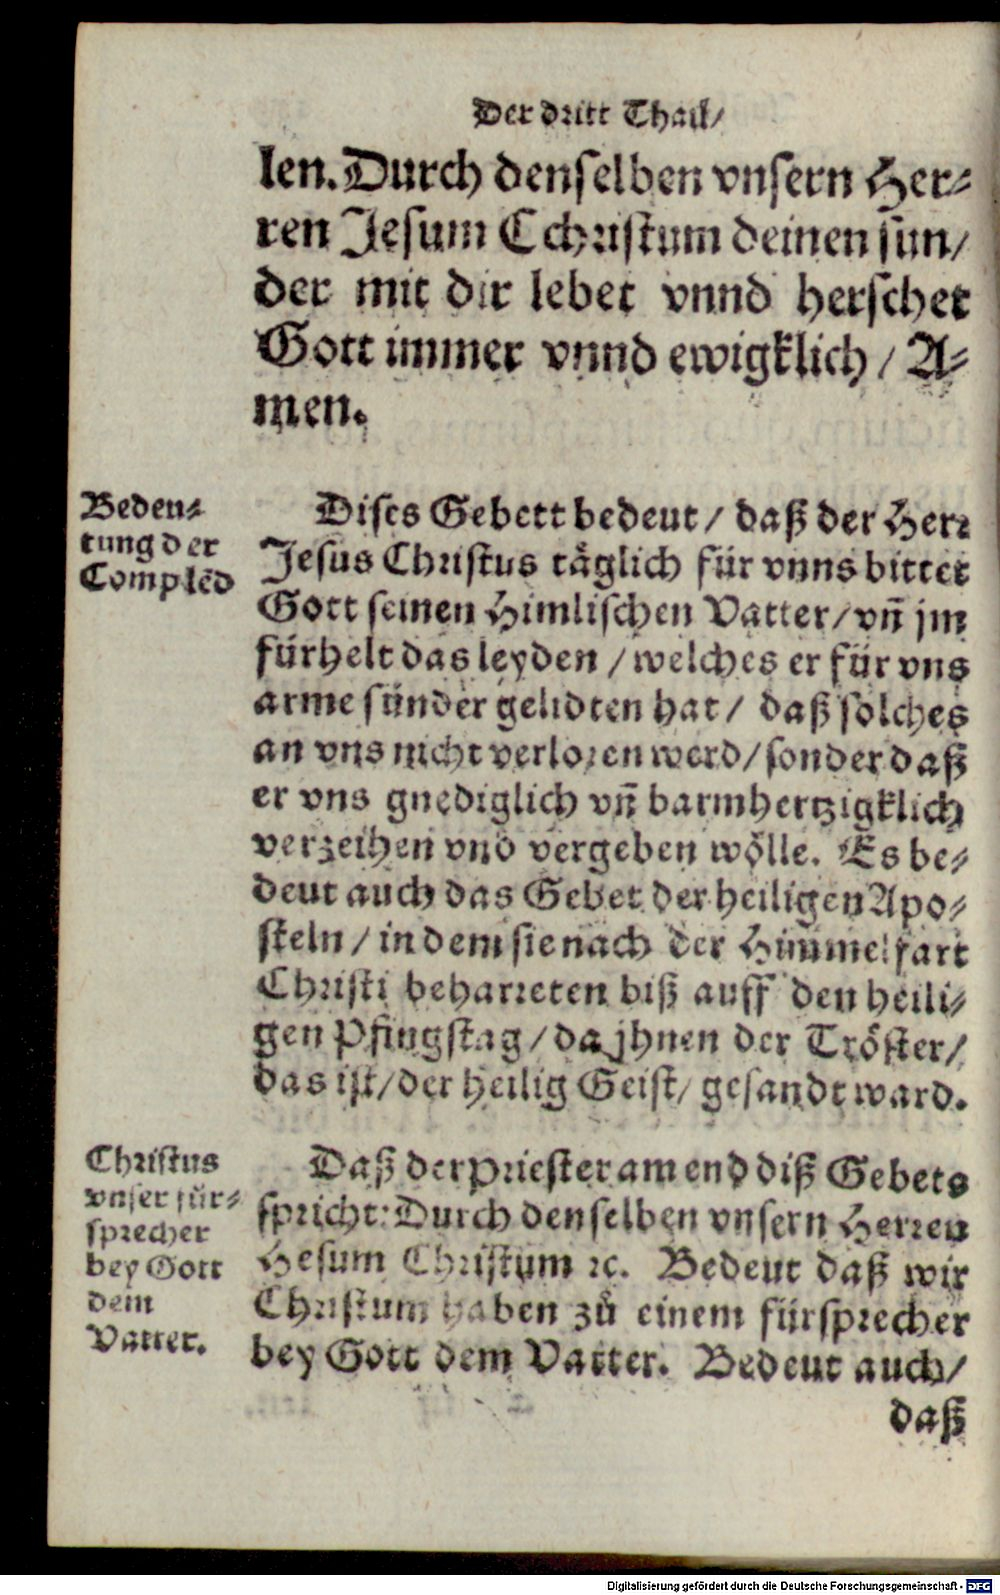 Der dritt Thail/
len. Durch denselben vnsern Her⸗
ren Jesum Cchristum deinen sun/
der mit dir lebet vnnd herschet
Gott immer vnnd ewigklich / A⸗
men.
Beden⸗
tung der
Complēd
Dises Gebett bedeut / daß der Herr
Jesus Christus täglich für vnns bittet
Gott seinen Himlischen Vatter / vn̄ jm
fürhelt das leyden / welches er für vns
arme sünder gelidten hat / daß solches
an vns nicht verloren werd / sonder daß
er vns gnediglich vn̄ barmhertzigklich
verzeihen vnd vergeben wölle. Es be⸗
deut auch das Gebet der heiligen Apo⸗
steln / in dem sie nach der Himmelfart
Christi beharreten biß auff den heili⸗
gen Pfingstag / da jhnen der Tröster /
das ist / der heilig Geist / gesandt ward.
Christus
vnser für⸗
sprecher
bey Gott
dem
Vatter.
Daß der Priester am end diß Gebets
spricht: Durch denselben vnsern Herren
Hesum Christum ꝛc. Bedeut daß wir
Christum haben zů einem fürsprecher
bey Gott dem Vatter. Bedeut auch /
daß
Digitalisierung gefördert durch die Deutsche Forschungsgemeinschaft - DFG